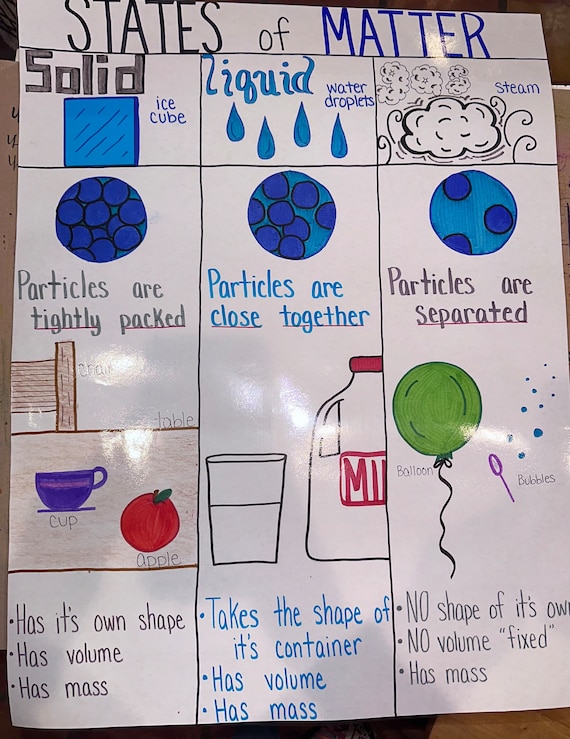 STATES of MATTER
Solid
ice
cube
Particles are
tightly packed
chair
table
cup
apple
•Has it's own shape
•Has volume
•Has mass
liquid
water
droplets
Particles are
close together
MIL
•Takes the shape of
it's container
•Has volume
•Has mass
steam
Particles are
separated
Balloon
Bubbles
•NO shape of it's own
•NO volume "fixed"
•Has mass